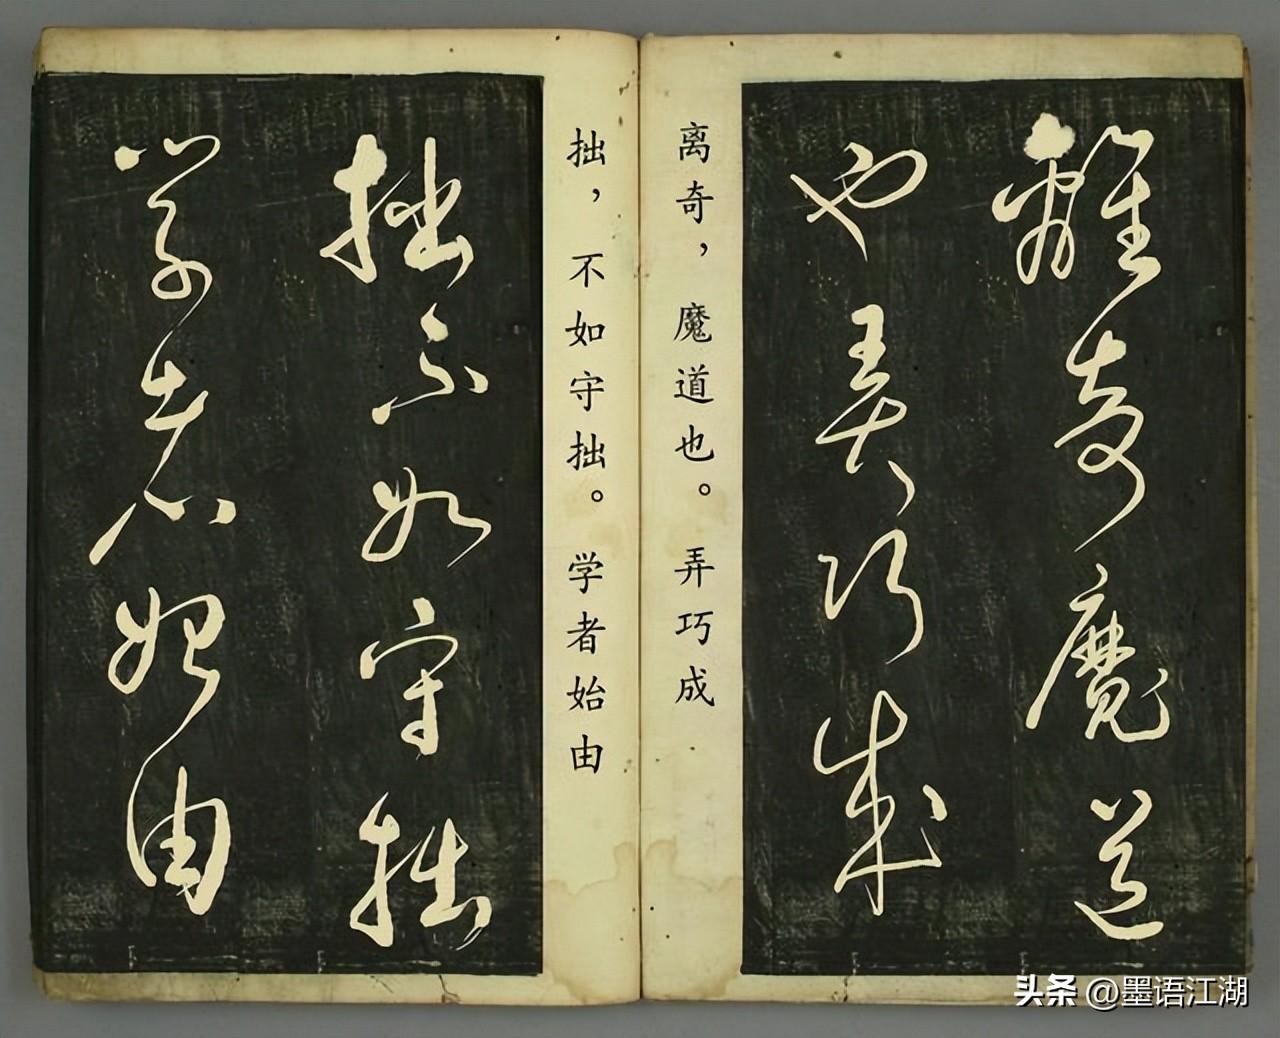 離奇魔道
也弄巧成
离奇，魔道也。弄巧成
拙，不如守拙。学者始由
拙不如守拙
学者始由
头条 @墨语江湖